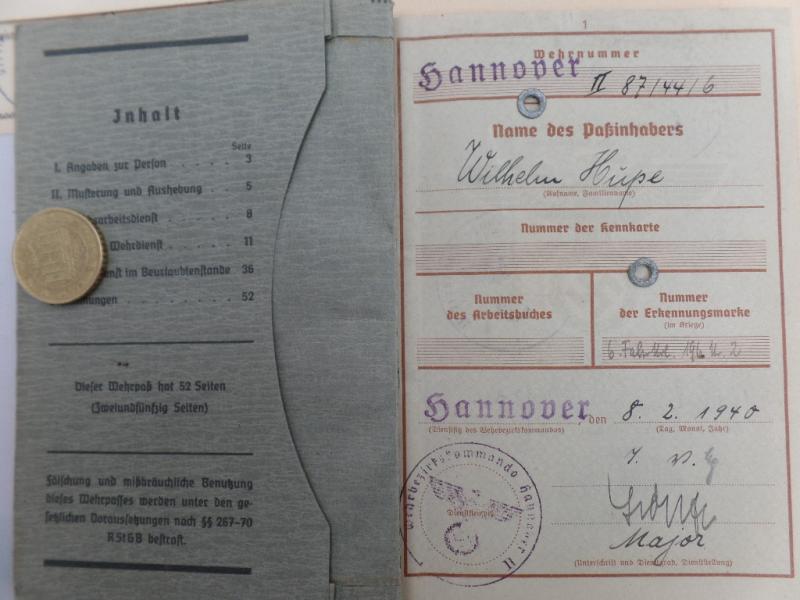 Inhalt
Seite
I. Angaben zur Person . . . . . 3
II. Musterung und Aushebung . . 5
arbeitsdienst . . . . . . . 8
Wehrdienst . . . . . . 11
im Beurlaubtenstande 36
ungen . . . . . . . . . 52
Dieser Wehrpaß hat 52 Seiten
(Zweiundfünfzig Seiten)
Fälschung und mißbräuchliche Benutzung
dieses Wehrpasses werden unter den ge-
setzlichen Voraussetzungen nach §§ 267-70
RStGB bestraft.
1
Wehrnummer
Hannover II 87/44/6
Name des Paßinhabers
Wilhelm Hupe
(Rufname, Familienname)
Nummer der Kennkarte
Nummer
des Arbeitsbuches
Nummer
der Erkennungsmarke
(im Kriege)
Hannover, den 8. 2. 1940
(Dienstsitz des Wehrbezirkskommandos) (Tag, Monat, Jahr)
Wehrbezirkskommando Hannover II
Dienststempel
Major
(Unterschrift und Dienstgrad, Dienststellung)